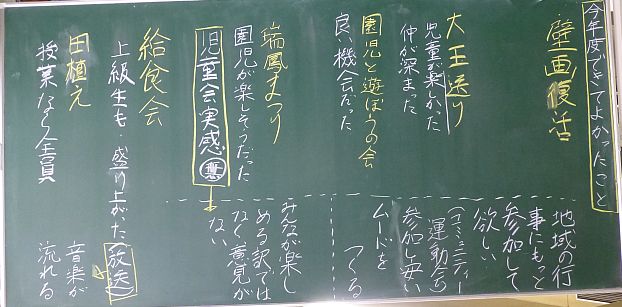 今年度できてよかったこと
壁画復活
大王送り
児童が楽しかった
仲が深まった
園児と遊ぼうの会
良い機会だった
瑞鳳まつり
園児が楽しそうだった
児童会実感
給食会
上級生も・盛り上がった(放送)
田植え
授業なく全員
地域の行
事にもっと
参加して
欲しい
(コミュニティー
運動会)
参加し安い
ムードを
つくる
みんなが楽し
める訳では
なく意見が
ない
音楽が
流れる